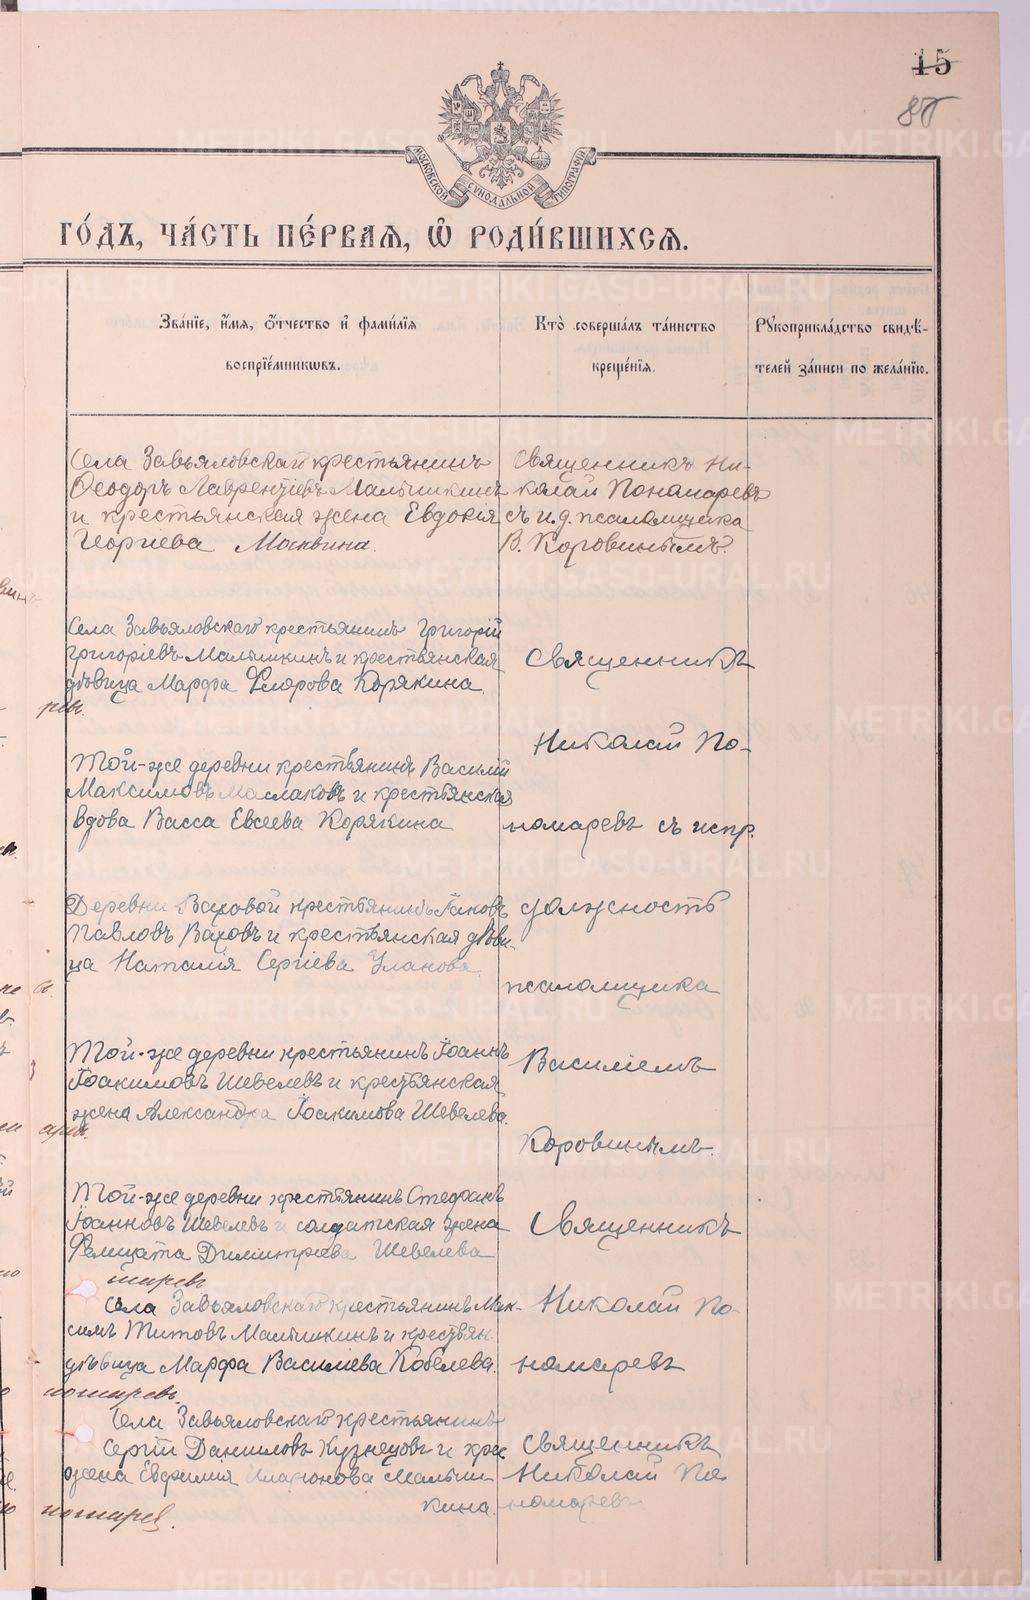 15
80
МОСКОВСКОЙ СѴНОДАЛЬНОЙ ТИПОГРАФІИ
ГО́ДЪ, ЧА́СТЬ ПЕ́РВАЯ, Ѡ҆ РОДИ́ВШИХСѦ.
Зва́нїе, и҆́мѧ, ѻ҆́тчество и҆ фами́лїѧ
воспрїе́мникѡвъ.
Кто̀ соверша́лъ та́инство
креще́нїѧ.
Рꙋкоприкла́дство свидѣ́-
телей за́писи по жела́нїю.
Села Завьяловскаго крестьянинъ
Ѳеодоръ Лаврентіевъ Малышкинъ
и крестьянская жена Евдокія
Георгіева Москвина.
Священникъ Ни-
колай Пономаревъ
съ и.д. псаломщика
В. Коровинымъ.
Села Завьяловскаго крестьянинъ Григорій
Григоріевъ Малышкинъ и крестьянская
дѣвица Марфа Флорова Корякина.
Той-же деревни крестьянинъ Василій
Максимовъ Маслаковъ и крестьянская
вдова Васса Евсеева Корякина
Деревни Ваховой крестьянинъ Іаковъ
Павловъ Ваховъ и крестьянская дѣви-
ца Наталія Сергіева Уланова.
Той-же деревни крестьянинъ Іоаннъ
Іоакимовъ Шевелевъ и крестьянская
жена Александра Іоакимова Шевелева.
Священникъ
Николай По-
номаревъ съ испр.
должность
псаломщика
Василіемъ
Коровинымъ.
Той-же деревни крестьянинъ Стефанъ
Іоанновъ Шевелевъ и солдатская жена
Фелицата Димитріева Шевелева
Села Завьяловскаго крестьянинъ Мак-
симъ Титовъ Малышкинъ и крестьян.
дѣвица Марфа Василіева Кобелева.
Священникъ
Николай По-
номаревъ
Села Завьяловскаго крестьянинъ
Сергій Даниловъ Кузнецовъ и крес.
жена Евфимія Иларіонова Малыш-
кина.
Священникъ
Николай По-
номаревъ
METRIKI.GASO-URAL.RU